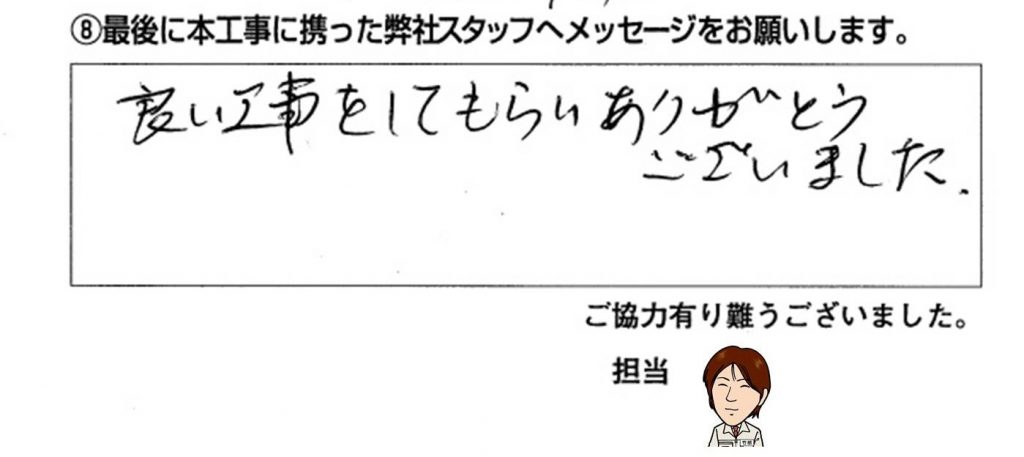 ⑧最後に本工事に携った弊社スタッフへメッセージをお願いします。
良い工事をしてもらいありがとう
ございました.
ご協力有り難うございました。
担当